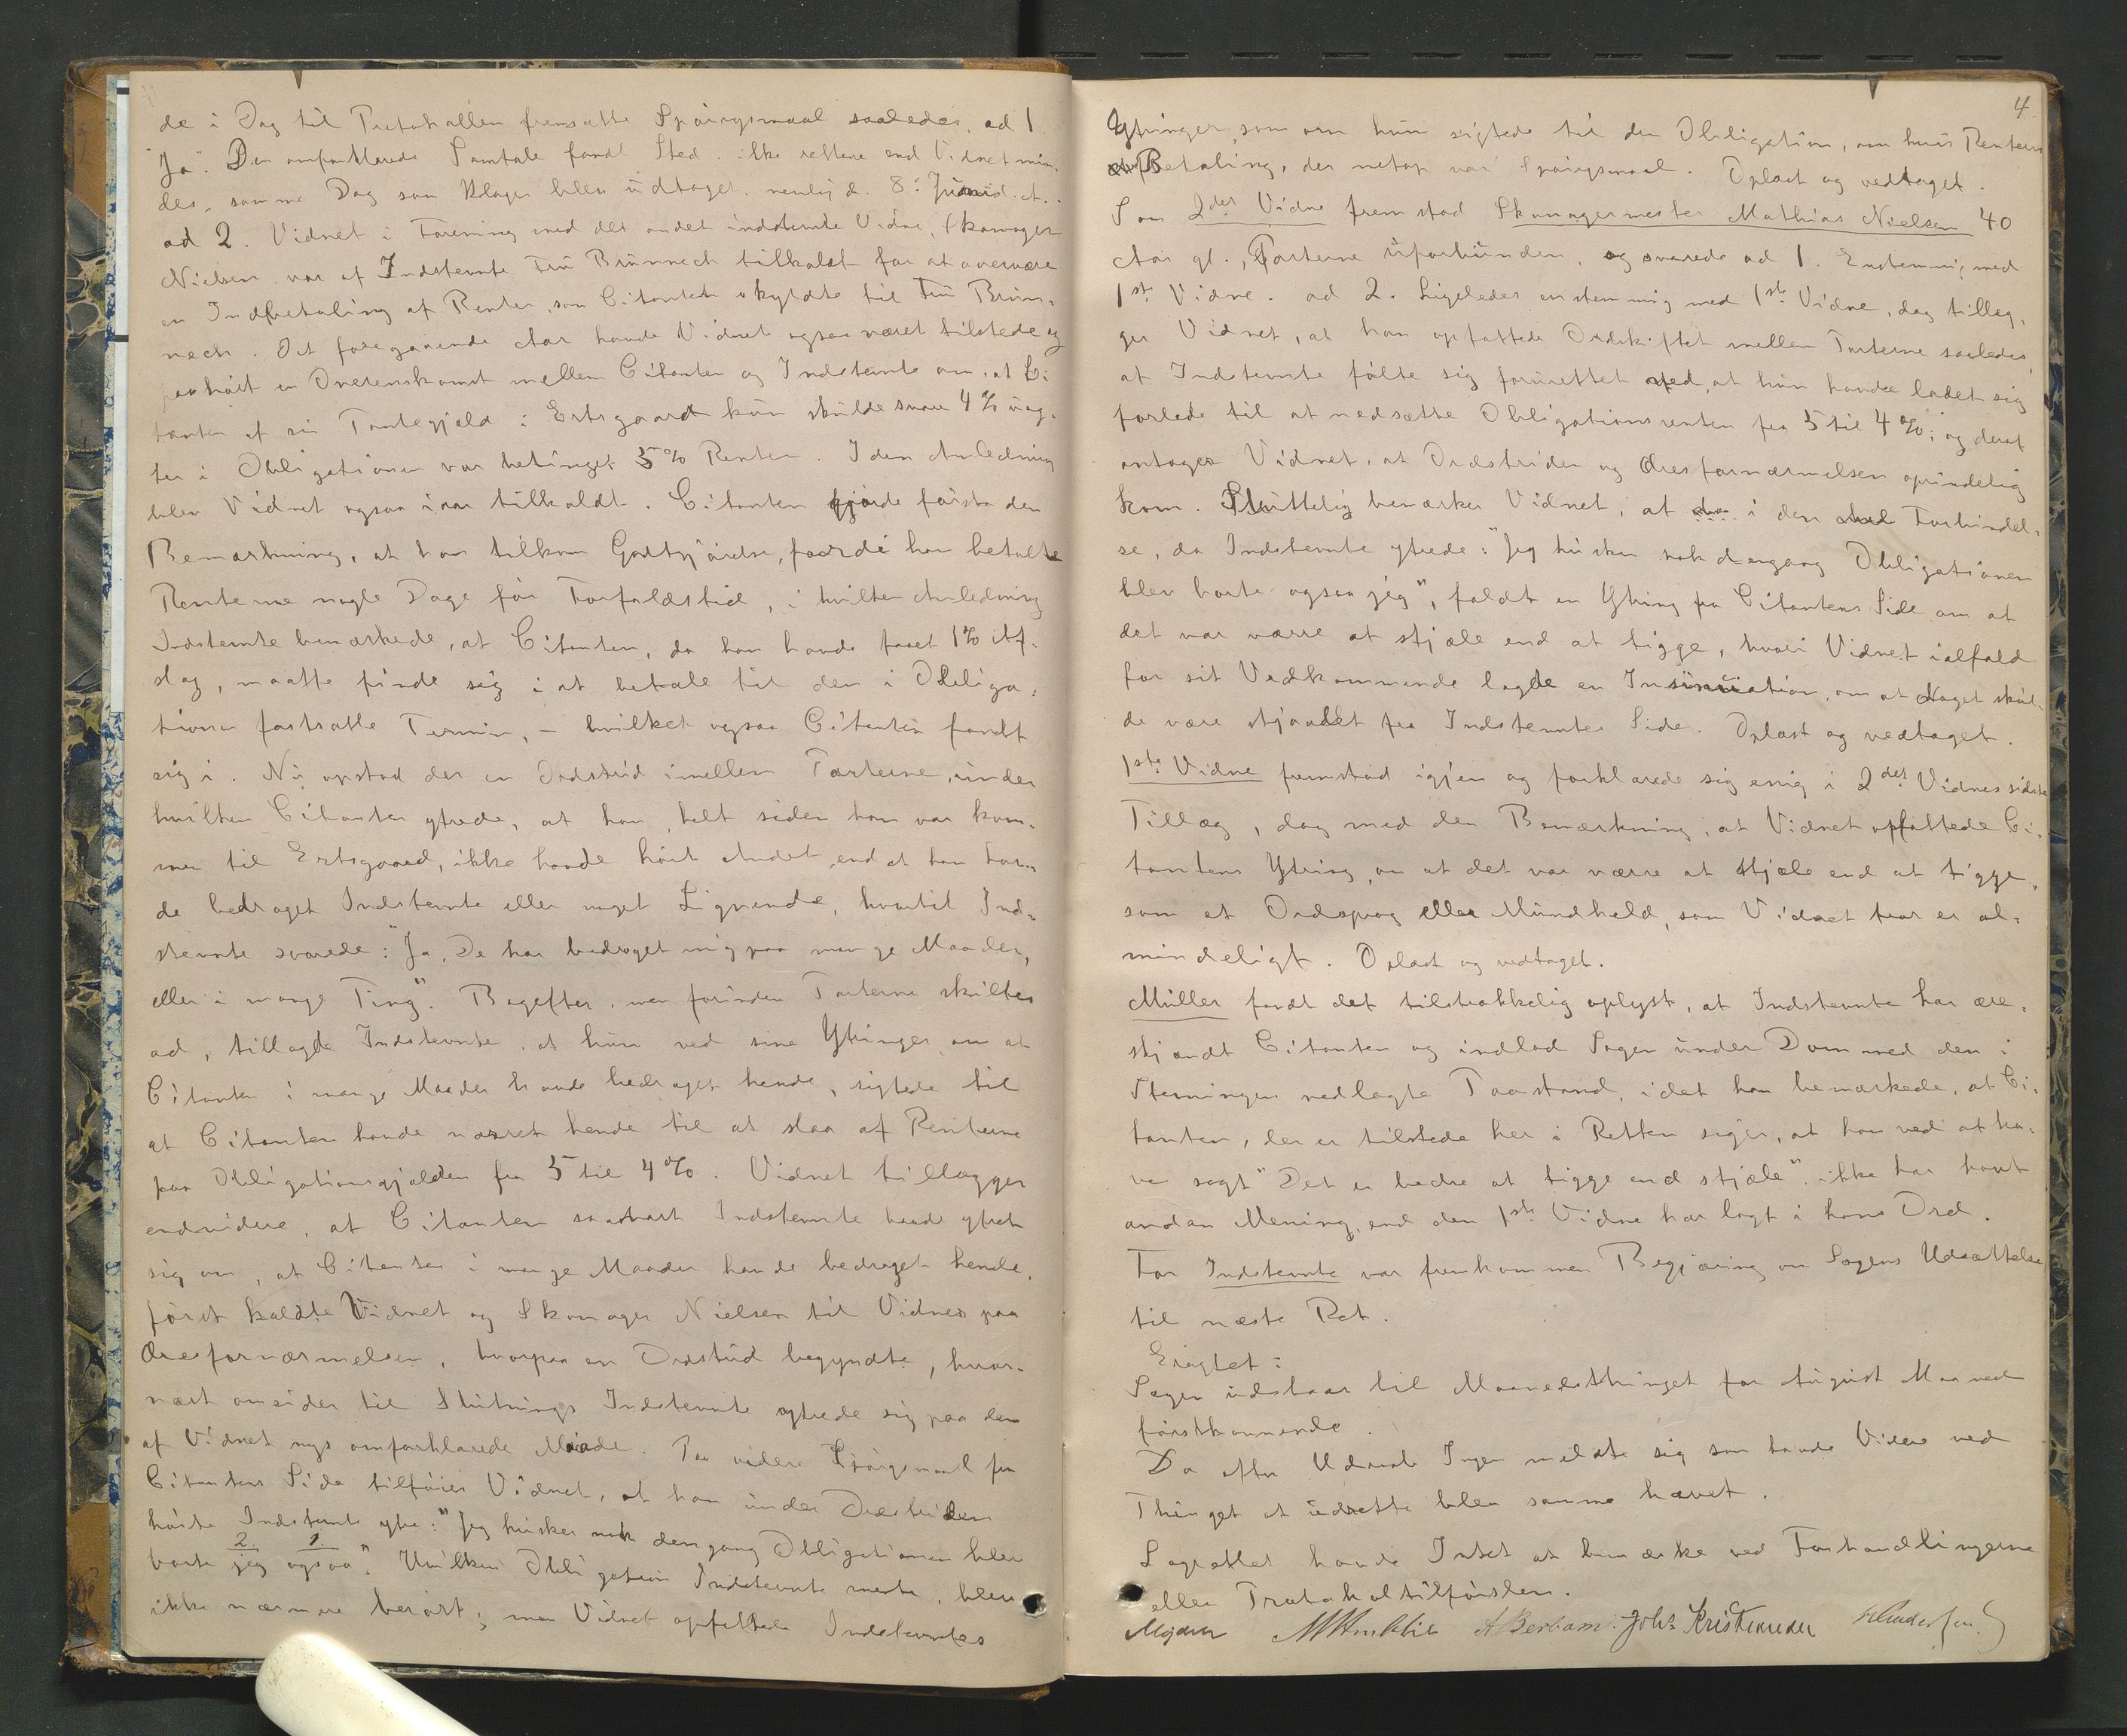 de i Dag til Protokollen fremsatte Spörgsmaal saaledes, ad 1.
"Ja". Den omforklarede Samtale fandt Sted, ikke rettere end Vidnet min-
des, samme Dag som Klagen blev udtaget, nemlig d. 8: Juni d. A.
ad 2. Vidnet i Forening med det andet indstevnte Vidne, Skomager
Nielsen var af Indstevnte Fru Brünnech tilkaldt for at overvære
en Indbetaling af Renter, som Citanten skyldte til Fru Brün-
nech. Det foregaaende Aar havde Vidnet ogsaa været tilstede og
paahört en Overenskomst mellem Citanten og Indstevnte om, at Ci-
tanten af sin Pantegjæld i Ertsgaard kun skulde svare 4% uag-
tet i Obligationen var betinget 5% Renter. I den Anledning
blev Vidnet ogsaa iaar tilkaldt. Citanten gjorde först den
Bemærkning, at ham tilkom Godtgjörelse, fordi han betalte
Renterne nogle Dage för Forfaldstid, i hvilken Anledning
Indstevnte bemærkede, at Citanten, da han havde faaet 1% Af-
slag, maatte finde sig i at betale til den i Obliga-
tionen fastsatte Termin, – hvilket ogsaa Citanten fandt
sig i. Nu opstod der en Ordstrid imellem Parterne, under
hvilken Citanten ytrede, at han, helt siden han var kom-
men til Ertsgaard, ikke havde hört Andet, end at han hav-
de bedraget Indstevnte eller noget Lignende, hvortil Ind-
stevnte svarede: "Ja, De har bedraget mig paa mange Maader,
eller i mange Ting". Bagefter, men forinden Parterne skiltes
ad, tillagde Indstevnte, at hun ved sine Ytringer om at
Citanten i mange Maader havde bedraget hende, sigtede til
at Citanten havde narret hende til at slaa af Renterne
paa Obligationsgjælden fra 5 til 4%. Vidnet tillægger
endvidere, at Citanten saasnart Indstevnte havde ytret
sig om, at Citanten i mange Maader havde bedraget hende,
först kaldte Vidnet og Skomager Nielsen til Vidner paa
Æresfornærmelsen, hvorpaa en Ordstrid begyndte, hvor-
næst omsider til Slutning Indstevnte ytrede sig paa den
af Vidnet nys omforklarede Maade. Paa videre Spörgsmaal fra
Citantens Side tilföier Vidnet, at han under Ordstriden
hörte Indstevnte ytre: "Jeg husker nok dengang Obligationen blev
2. 1.
borte jeg ogsaa". Hvilken Obligation Indstevnte mente, blev
ikke nærmere berört; men Vidnet opfattede Indstevntes
4
Ytringer, som om hun sigtede til den Obligation, om hvis Renters
Betaling, der netop var Spörgsmaal. Oplæst og vedtaget.
Som 2det Vidne fremstod Skomagermester Mathias Nielsen 40
Aar gl., Parterne uforbunden, og svarede ad 1. Enstemmig med
1ste Vidne. ad 2. Ligeledes enstemmig med 1ste Vidne, dog tillæg-
ger Vidnet, at han opfattede Ordskiftet mellem Parterne saaledes,
at Indstevnte fölte sig forurettet ved, at hun havde ladet sig
forlede til at nedsætte Obligationsrenten fra 5 til 4%; og deraf
antager Vidnet, at Ordstriden og Æresfornærmelsen oprindelig
kom. Sluttelig bemærker Vidnet, at i den Forbindel-
se, da Indstevnte ytrede: "Jeg husker nok dengang Obligationen
blev borte ogsaa jeg", faldt en Ytring fra Citantens Side om at
det var værre at stjæle end at tigge, hvori Vidnet ialfald
for sit Vedkommende lagde en Insinuation, om at Noget skul-
de være stjaalet fra Indstevntes Side. Oplæst og vedtaget.
1ste Vidne fremstod igjen og forklarede sig enig i 2det Vidnes sidste
Tillæg, dog med den Bemærkning, at Vidnet opfattede Ci-
tantens Ytring, om at det var værre at stjæle end at tigge,
som et Ordsprog eller Mundheld, som Vidnet tror er al-
mindeligt. Oplæst og vedtaget.
Müller fandt det tilstrækkelig oplyst, at Indstevnte har ære-
skjændt Citanten og indlod Sagen under Dom med den i
Stevningen nedlagte Paastand, idet han bemærkede, at Ci-
tanten, der er tilstede her i Retten siger, at han ved at ha-
ve sagt "Det er bedre at tigge end stjæle", ikke har havt
anden Mening, end den 1ste Vidne har lagt i hans Ord.
For Indstevnte var fremkommen Begjæring om Sagens Udsættelse
til næste Ret.
Eragtet:
Sagen udstaar til Maanedsthinget for August Maaned
förstkommende.
Da efter Udraab Ingen meldte sig som havde Videre ved
Thinget at udrette blev samme hævet.
Lagrettet havde Intet at bemærke ved Forhandlingerne
eller Protokoltilförslen.
A Berbom. Johs Kristensen